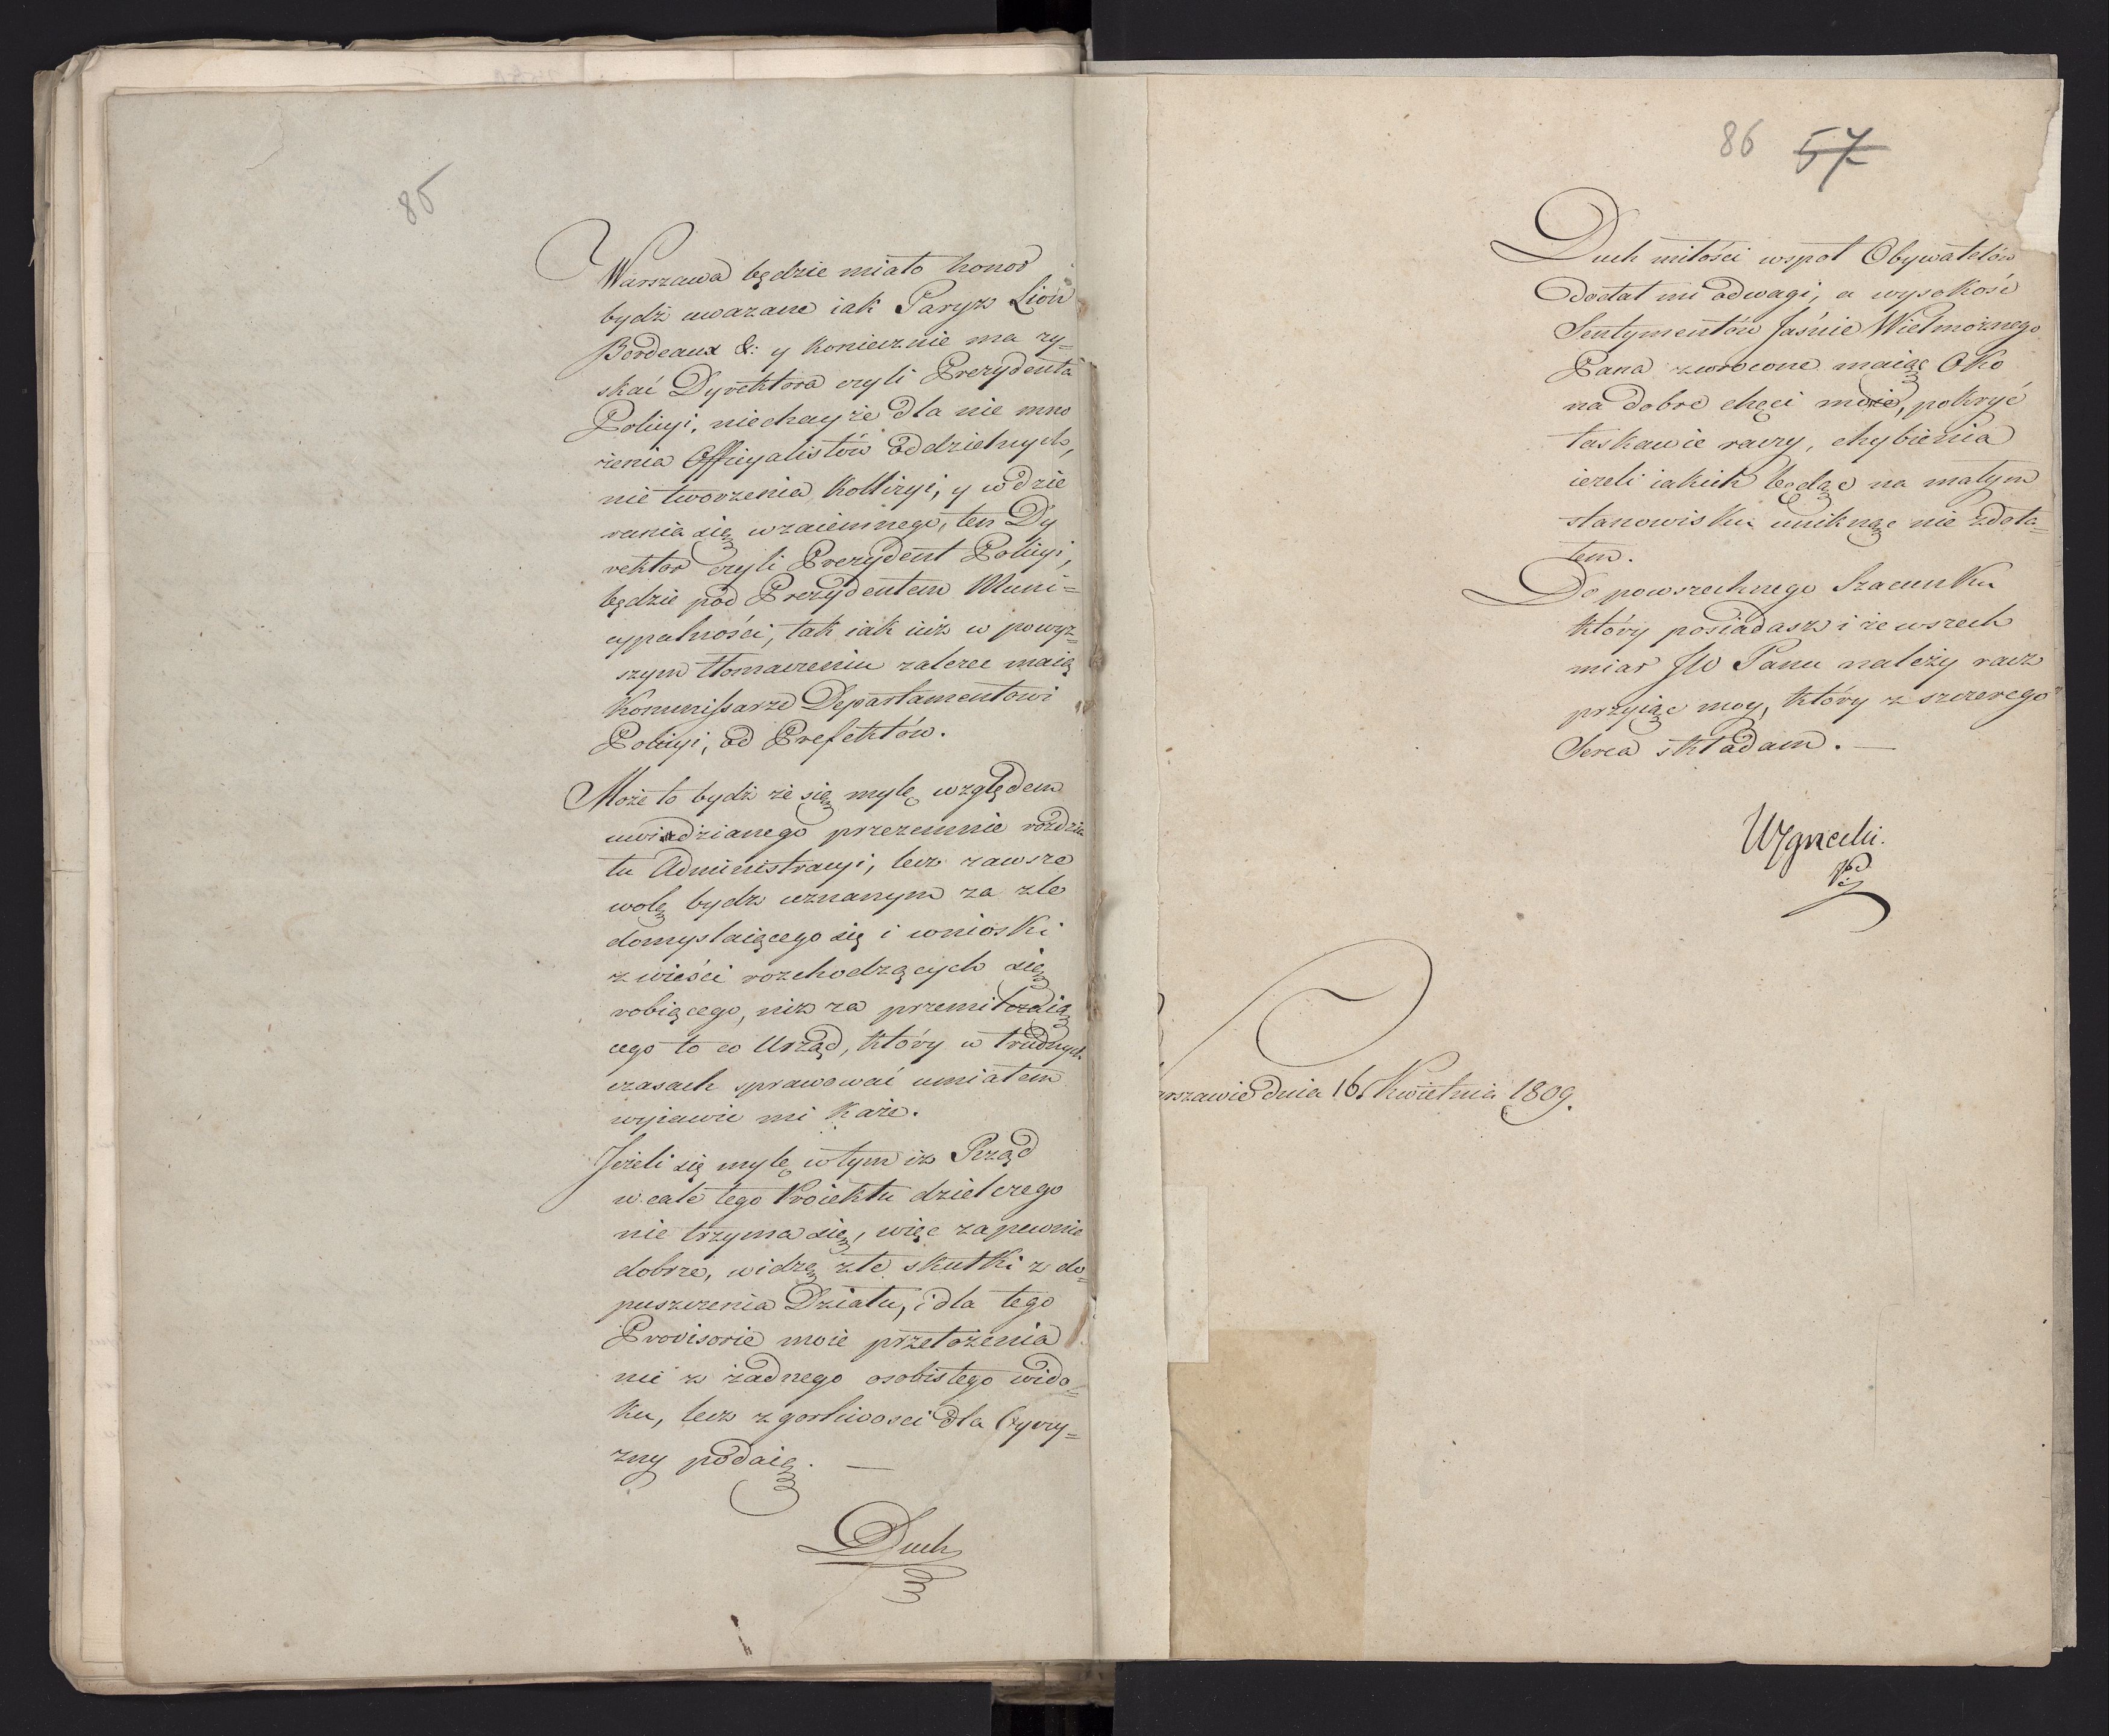 85
Warszawa będzie miało honor
bydź uważane iak Paryz Lion
Bordeaux &: y koniecznie ma zy=
skać Dyrektora czyli Prezydenta
Policyi, niechayże dla nie mno
żenia Officyalistów oddzielnych,
nie tworzenia Kollizyi, y wdzie
rania się wzaiemnego, ten Dy
rektor czyli Prezydent Policyi,
będzie pod Prezydentem Muni=
cypalności, tak iak iuż w powyż=
szym tłomaczeniu zależeć maią
Kommissarze Departamentowi
Policyi, od Prefektów.
Może to bydź że się mylę względem
uwiedzianego przezemnie rozdzia
łu Administracyi, lecz zawsze
wolę bydź uznanym za zle
domyslaiącego się i wnioski
z wieści rozchodzących się
robiącego, niż za przemilczaią
cego to co Urząd, który w trudnych
czasach sprawować umiałem
wyiawić mi każe.
Jeżeli się mylę w tym iż Rząd
wcale tego Proiektu dzielczego
nie trzyma się, więc zapewnie
dobrze, widzę złe skutki z do=
puszczenia Działu, i dla tego
Provisorie moie przełożenia
nie z żadnego osobistego wido=
ku, lecz z gorliwosci dla Oyczy=
zny podaię. —
Duch
86 57
Duch miłości wspoł Obywatelów
dodał mi odwagi, a wysokość
Sentymentów Jaśnie Wielmożnego
Pana zwrocone maiąc Oko
na dobre chęci moie, pokryć
łaskawie raczy, chybienia
ieżeli iakich będąc na małym
stanowisku uniknąć nie zdoła=
łem.
Do powszechnego Szacunku
który posiadasz i ze wszech
miar JW Panu należy racz
przyiąć moy, który z szczerego
Serca składam. —
arszawie dnia 16. Kwietnia 1809.